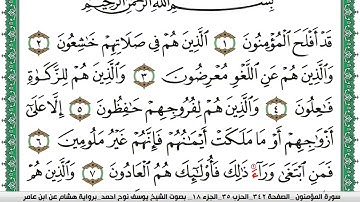 بِسْمِ اللَّهِ الرَّحْمَٰنِ الرَّحِيمِ
قَدْ أَفْلَحَ الْمُؤْمِنُونَ ١ الَّذِينَ هُمْ فِي صَلَاتِهِمْ خَٰشِعُونَ ٢
وَالَّذِينَ هُمْ عَنِ اللَّغْوِ مُعْرِضُونَ ٣ وَالَّذِينَ هُمْ لِلزَّكَوٰةِ
فَٰعِلُونَ ٤ وَالَّذِينَ هُمْ لِفُرُوجِهِمْ حَٰفِظُونَ ٥ إِلَّا عَلَىٰ
أَزْوَٰجِهِمْ أَوْ مَا مَلَكَتْ أَيْمَٰنُهُمْ فَإِنَّهُمْ غَيْرُ مَلُومِينَ ٦
فَمَنِ ابْتَغَىٰ وَرَآءَ ذَٰلِكَ فَأُولَٰٓئِكَ هُمُ الْعَادُونَ ٧ وَالَّذِينَ هُمْ
سورة المؤمنون . الصفحة ٣٤٢ . الحزب ٣٥ . الجزء ١٨ . بصوت الشيخ يوسف نوح احمد . برواية هشام عن ابن عامر